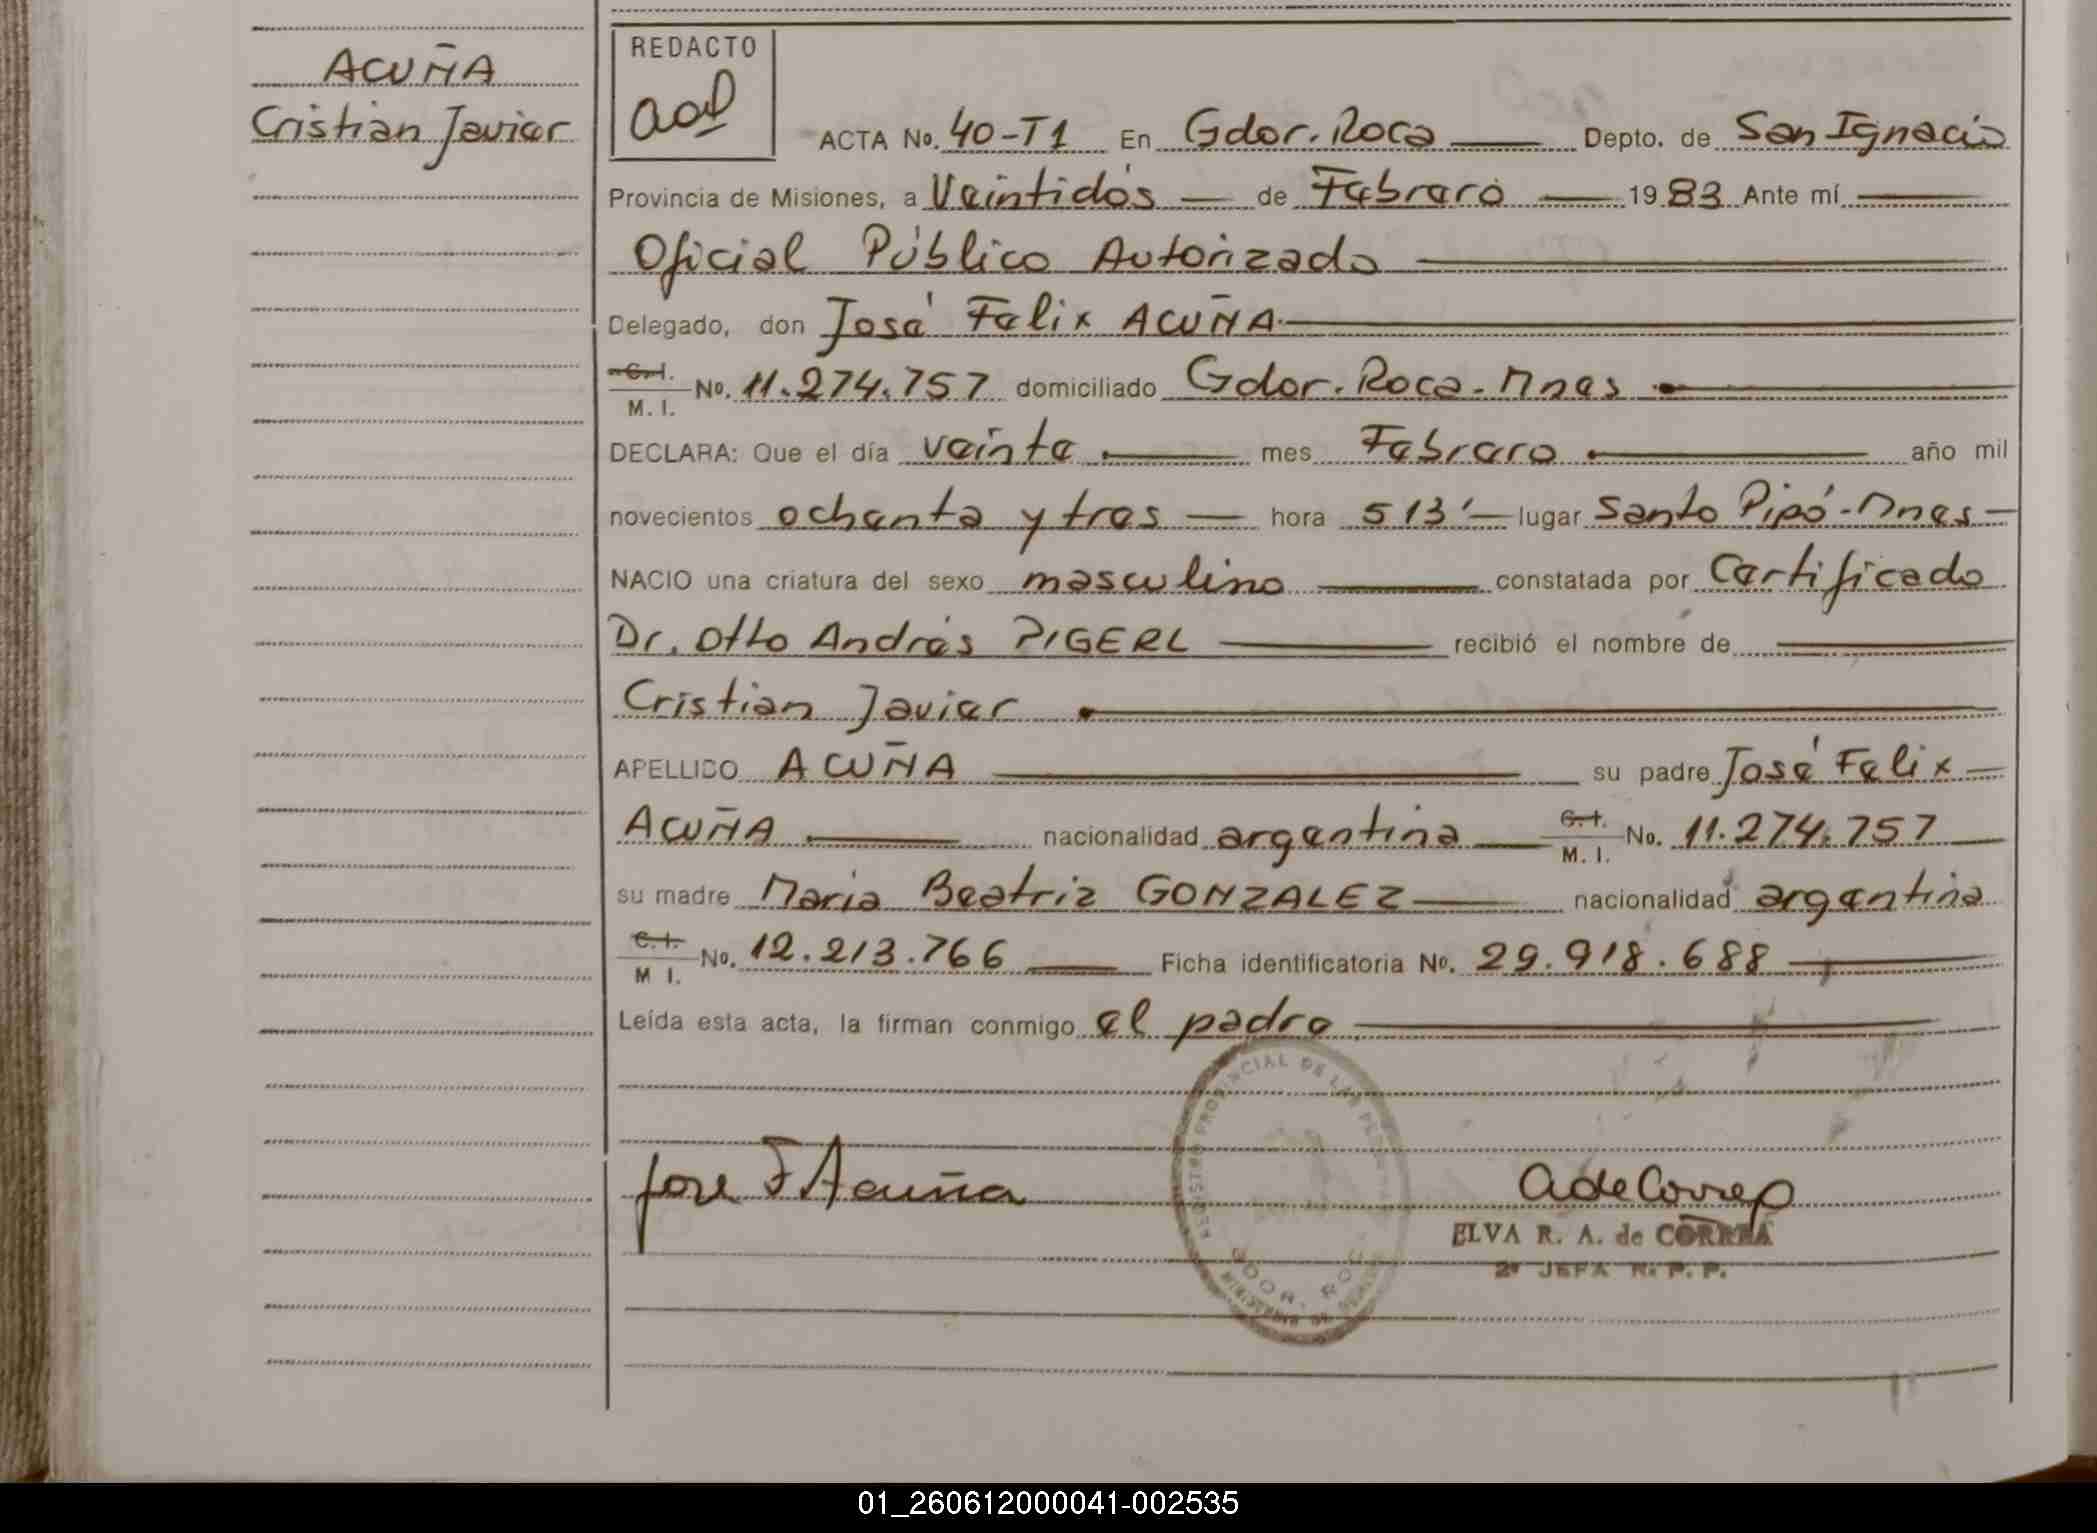 ACUÑA
Cristian Javier
REDACTO
ACTA No. 40-T1 En Gdor. Roca Depto. de San Ignacio
Provincia de Misiones, a Veintidós de Febrero 1983 Ante mí
Oficial Público Autorizado
Delegado, don José Felix ACUÑA
C.I. M.I. No. 11.274.757 domiciliado Gdor. Roca - Mnes
DECLARA: Que el día veinte mes Febrero año mil
novecientos ochenta y tres hora 5 13' lugar Santo Pipó - Mnes -
NACIO una criatura del sexo masculino constatada por Certificado
Dr. Otto Andrés PIGERL recibió el nombre de
Cristian Javier
APELLIDO ACUÑA su padre José Felix
ACUÑA nacionalidad argentina C.I. M.I. No. 11.274.757
su madre Maria Beatriz GONZALEZ nacionalidad argentina
C.I. M I. No. 12.213.766 Ficha identificatoria No. 29.918.688
Leída esta acta, la firman conmigo el padre
REGISTRO PROVINCIAL DE LAS
GDOR. ROCA
Jose F Acuña
AdeCorrea
ELVA R. A. de CORREA
2ª JEFA R. P. P.
01_260612000041-002535